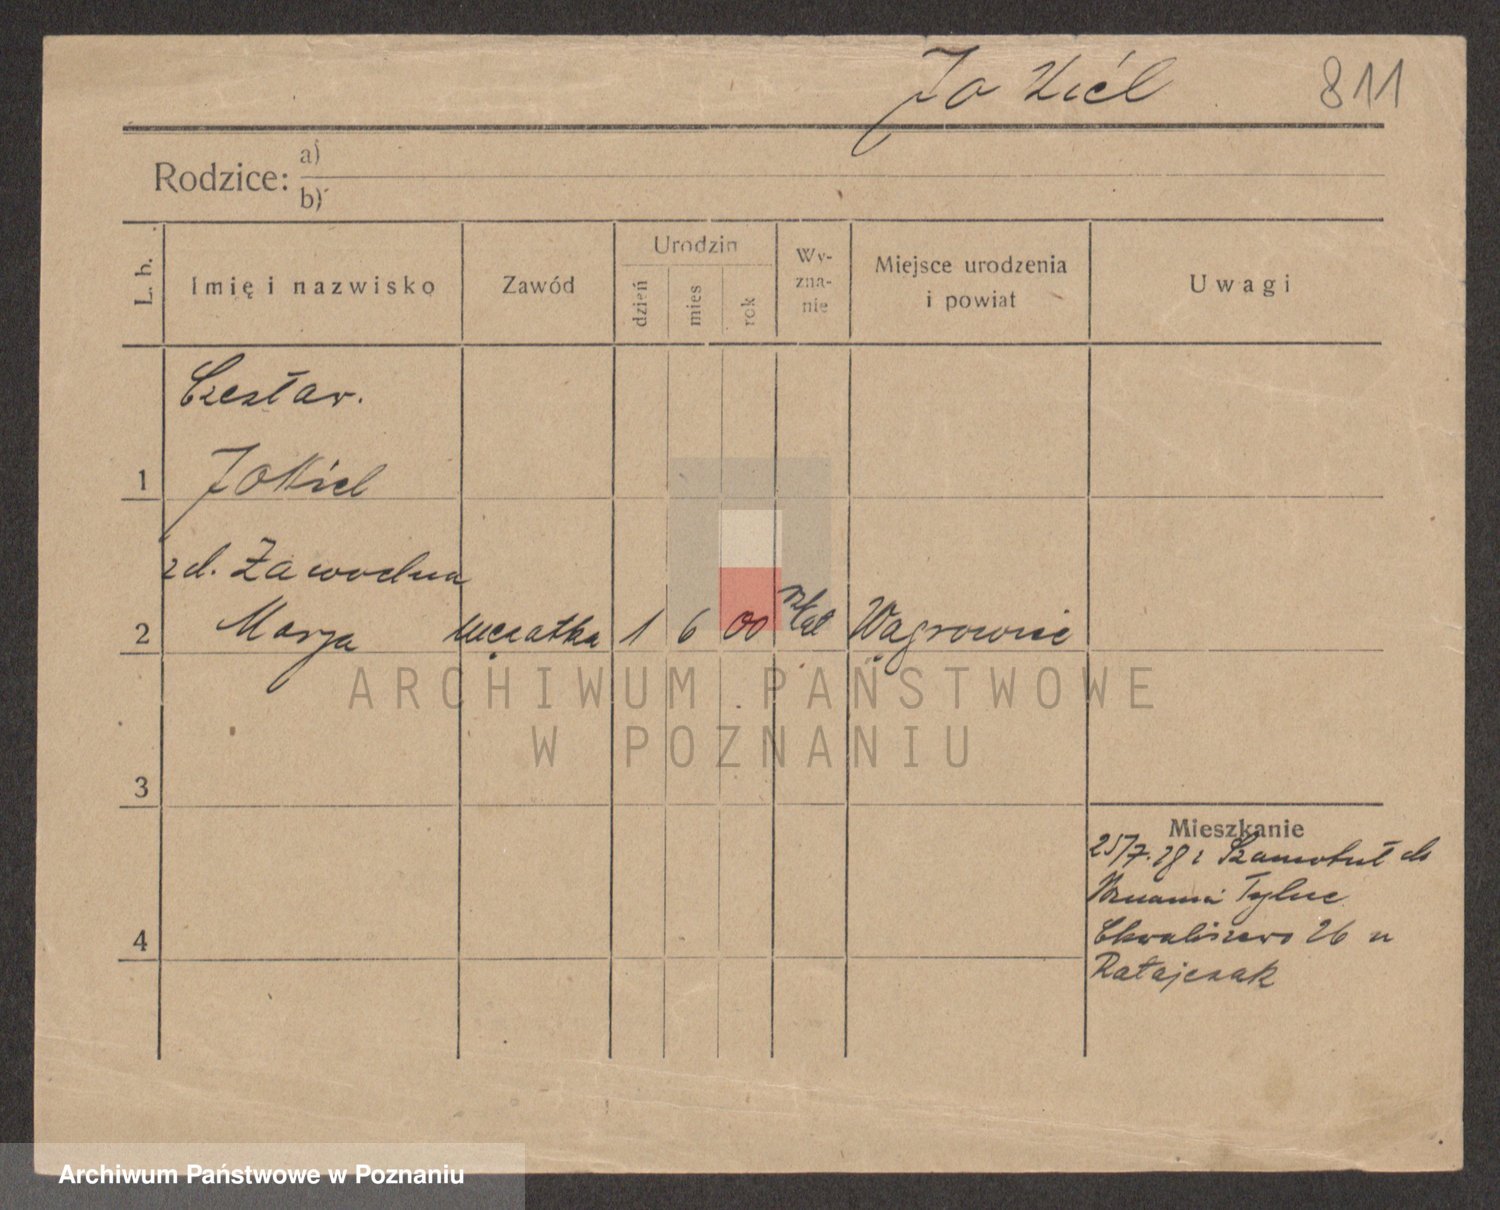 Jokiél
811
Rodzice: a)
b)
L. b.
Imię i nazwisko
Zawód
Urodzin
dzień
mies
rok
Wy-
zna-
nie
Miejsce urodzenia
i powiat
Uwagi
Czesław.
1 Jokiel
zd. Zawodna
2 Marja 1 6 00 Wągrowiec
3
Mieszkanie
25/7. 28 z Szamotuł do
Poznania
Chwaliszewo 26 u
Ratajczak
4
ARCHIWUM PAŃSTWOWE
W POZNANIU
Archiwum Państwowe w Poznaniu